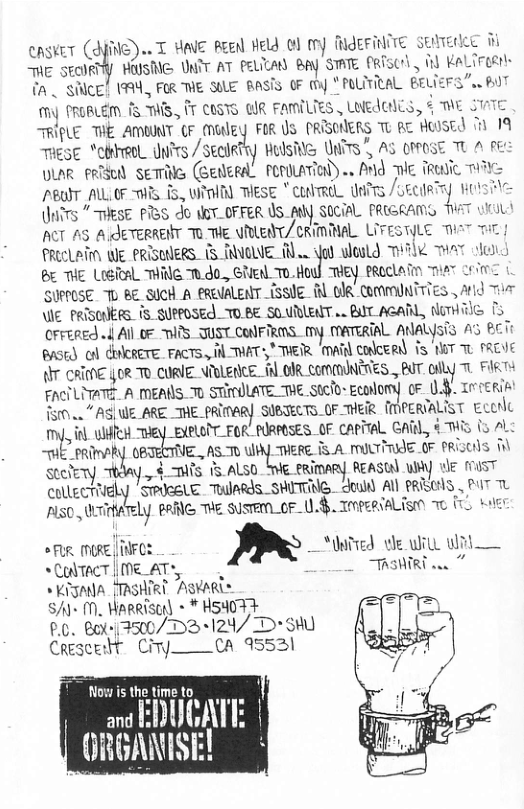 CASKET (dYING).. I HAVE BEEN HELD ON MY INDEFINITE SENTENCE IN
THE SECURITY HOUSING UNIT AT PELICAN BAY STATE PRISON, IN KALIFORN-
IA, SINCE 1994, FOR THE SOLE BASIS OF MY "POLITICAL BELIEFS".. BUT
MY PROBLEM IS THIS, IT COSTS OUR FAMILIES, LOVEDONES, & THE STATE,
TRIPLE THE AMOUNT OF MONEY FOR US PRISONERS TO BE HOUSED IN
THESE "CONTROL UNITS/SECURITY HOUSING UNITS", AS OPPOSE TO A REG
ULAR PRISON SETTING (GENERAL POPULATION).. AND THE IRONIC THING
ABOUT ALL OF THIS IS, WITHIN THESE "CONTROL UNITS/SECURITY HOUSING
UNITS" THESE PIGS dO NOT OFFER US ANY SOCIAL PROGRAMS THAT WOULD
ACT AS A dETERRENT TO THE VIOLENT/CRIMINAL LIFESTYLE THAT THEY
PROCLAIM WE PRISONERS IS INVOLVE IN.. YOU WOULD THINK THAT WOULD
BE THE LOGICAL THING TO dO, GIVEN TO HOW THEY PROCLAIM THAT CRIME
SUPPOSE TO BE SUCH A PREVALENT ISSUE IN OUR COMMUNITIES, ANd THAT
WE PRISONERS IS SUPPOSED TO BE SO VIOLENT.. BUT AGAIN, NOTHING IS
OFFERED.. All OF THIS JUST CONFIRMS MY MATERIAL ANALYSIS AS BEIN
BASED ON CONCRETE FACTS, IN THAT; "THEIR MAIN CONCERN IS NOT TO PREVE
NT CRIME OR TO CURVE VIOLENCE IN OUR COMMUNITIES, BUT ONLY TO FURTH
FACILITATE A MEANS TO STIMULATE THE SOCIO-ECONOMY OF U.$. IMPERIAl
ism.. "AS WE ARE THE PRIMARY SUBJECTS OF THEIR IMPERIALIST ECONO
MY, IN WHICH THEY EXPLOIT FOR PURPOSES OF CAPITAL GAIN, & THIS IS ALS
THE PRIMARY OBJECTIVE, AS TO WHY THERE IS A MULTITUDE OF PRISONS IN
SOCIETY TODAY, & THIS IS ALSO THE PRIMARY REASON WHY WE MUST
COLLECTIVELY STRUGGLE TOWARDS SHUTTING dOWN All PRISONS, BUT TO
ALSO, ULTIMATELY BRING THE SYSTEM OF U.$. IMPERIALISM TO IT'S KNEES
• FOR MORE INFO:
• CONTACT ME AT:,
• KIJANA TASHIRI ASKARI•
S/N• M. HARRISON • # H54077
P.O. BOX• 7500/D3•124/D•SHU
CRESCENT CITY___ CA 95531
"UNITEd WE WILL WIN___
TASHIRI..."
Now is the time to
and EDUCATE
ORGANISE!